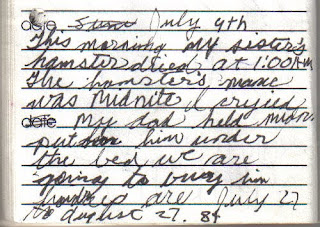 date July 9th
This morning my sister's
hamster died at 1:00 A.M.
The hamster's name
was Midnite I cryied
date My dad held Midn.
put him under
the bed we are
going to bury him
are July 27
to august 27. 84